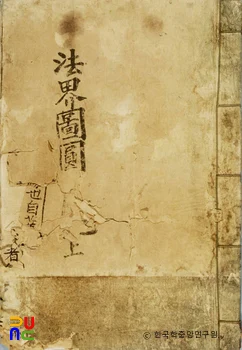 法界圖圓
上
者
© 한국학중앙연구원